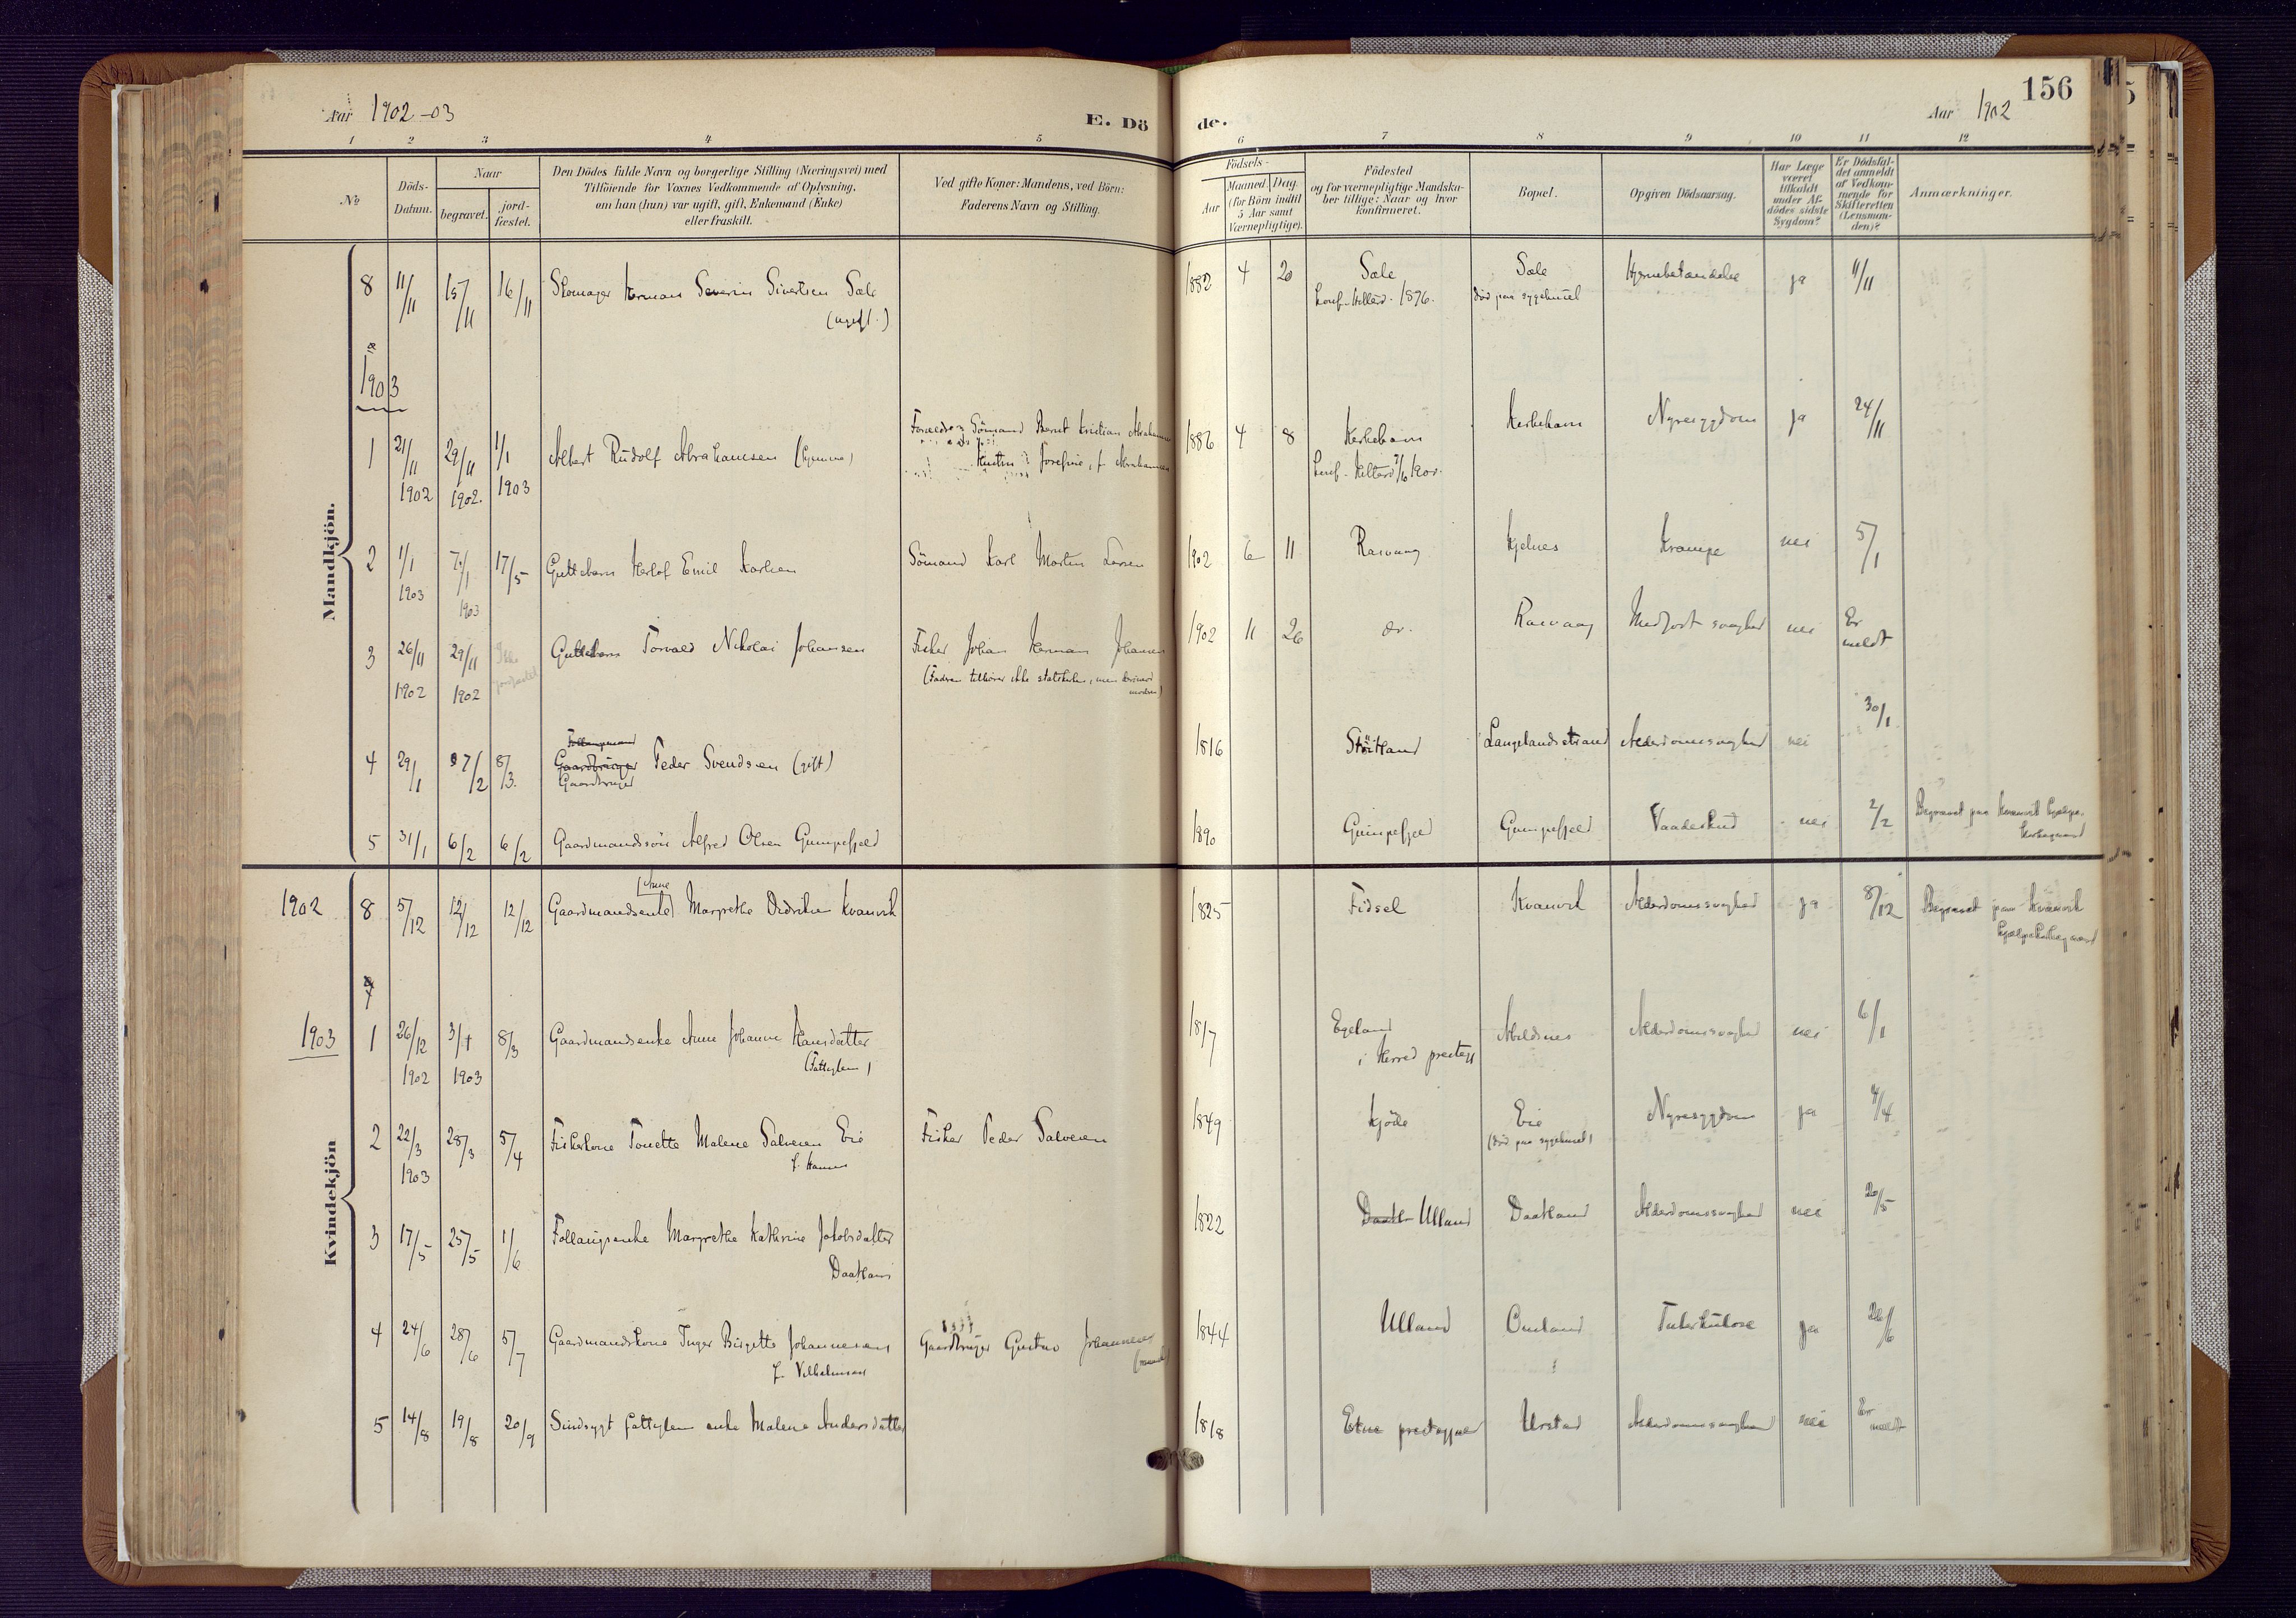 156
Aar 1902-03
E. Dö
de.
Aar 1902
1 2 3 4 5 6 7 8 9 10 11 12
No
Döds-
Datum.
Naar
begravet.
jord-
fæstet.
Den Dödes fulde Navn og borgerlige Stilling (Næringsvei) med
Tilföiende for Voxnes Vedkommende af Oplysning,
om han (hun) var ugift, gift, Enkemand (Enke)
eller fraskilt.
Ved gifte Koner: Mandens, ved Börn:
Faderens Navn og Stilling.
Födsels-
Aar
Maaned. Dag.
(for Börn indtil
5 Aar samt
Værnepligtige).
Födested
og for værnepligtige Mandska-
ber tillige: Naar og hvor
konfirmeret.
Bopæl.
Opgiven Dödsaarsag.
Har Læge
været
tilkaldt
under Af-
dödes sidste
Sygdom?
Er Dödsfal-
det anmeldt
af Vedkom-
mende for
Skifteretten
(Lensman-
den)?
Anmærkninger.
Mandkjön.
8 11/11 15/11 16/11 Skomager Herman Severin Sivertsen Sæle 1882 4 20 Sæle Sæle Hjernebetændelse ja 11/11
(ugift.) konf. 1896. död paa sygehuset
1903
1 21/11 29/11 1/1 Albert Rudolf Abrahamsen Sömand Bernt Kristian 1886 4 8 Kirkehavn Kirkehavn Nyresygdom ja 24/11
1902 1902. 1903 Josefine, f.
2 1/1 7/1 17/5 Guttebarn Herlof Emil Karlsen Sömand Karl Martin Larsen 1902 6 11 Rasvaag Kjelnes Krampe nei 5/1
1903 1903
3 26/11 29/11 Guttebarn Torvald Nikolai Johansen Fisker Johan Herman Johansen 1902 11 26 do. Rasvaag Medfödt svaghed nei Er
1902 1902 (Faderen tilhörer ikke statskirken, men moderen) meldt
4 29/1 7/2 8/3. Gaardbruger Peder Svendsen (gift) 1816 Langelandsstrand Alderdomssvaghed nei 30/1
Gaardbruger
5 31/1 6/2 6/2 Gaardmandssön Alfred Olsen Gumpefjeld 1890 Gumpefjeld Gumpefjeld Vaadeskud nei 2/2 Begravet paa Kvanvik hjælpe-
kirkegaard
Kvindekjön
1902 8 5/12 12/12 12/12 Gaardmandsenke (Anne) Margrethe Didriksen Kvanvik 1825 Fidsel Kvanvik Alderdomssvaghed ja 8/12 Begravet paa Kvanvik
hjælpekirkegaard
1903 1 26/12 3/1 8/3 Gaardmandsenke Anne Johanne Hansdatter 1817 Egeland Abelsnes Alderdomssvaghed nei 6/1
1902 1903 (Fattiglem) i Herred prestegj
2 22/3 28/3 5/4 Fiskerkone Tonette Malene Salvesen Eie Fisker Peder Salvesen 1849 Kjöde Eie Nyresygdom ja 4/4
1903 f. Hansen (död paa sygehuset)
3 17/5 25/5 1/6 Follaugsenke Margrethe Kathrine Jakobsdatter 1822 Ulland Daatland Alderdomssvaghed nei 20/5
Daatland
4 24/6 28/6 5/7 Gaardmandskone Inger Birgette Johannesen Gaardbruger Gustav Johannesen 1844 Ulland Omland Tuberkulose ja 26/6
f. Vilhelmsen
5 14/8 19/8 20/9 Sindsygt fattiglem enke Malene Andersdatter 1818 Etne prestegjeld Urstad Alderdomssvaghed nei Er
meldt